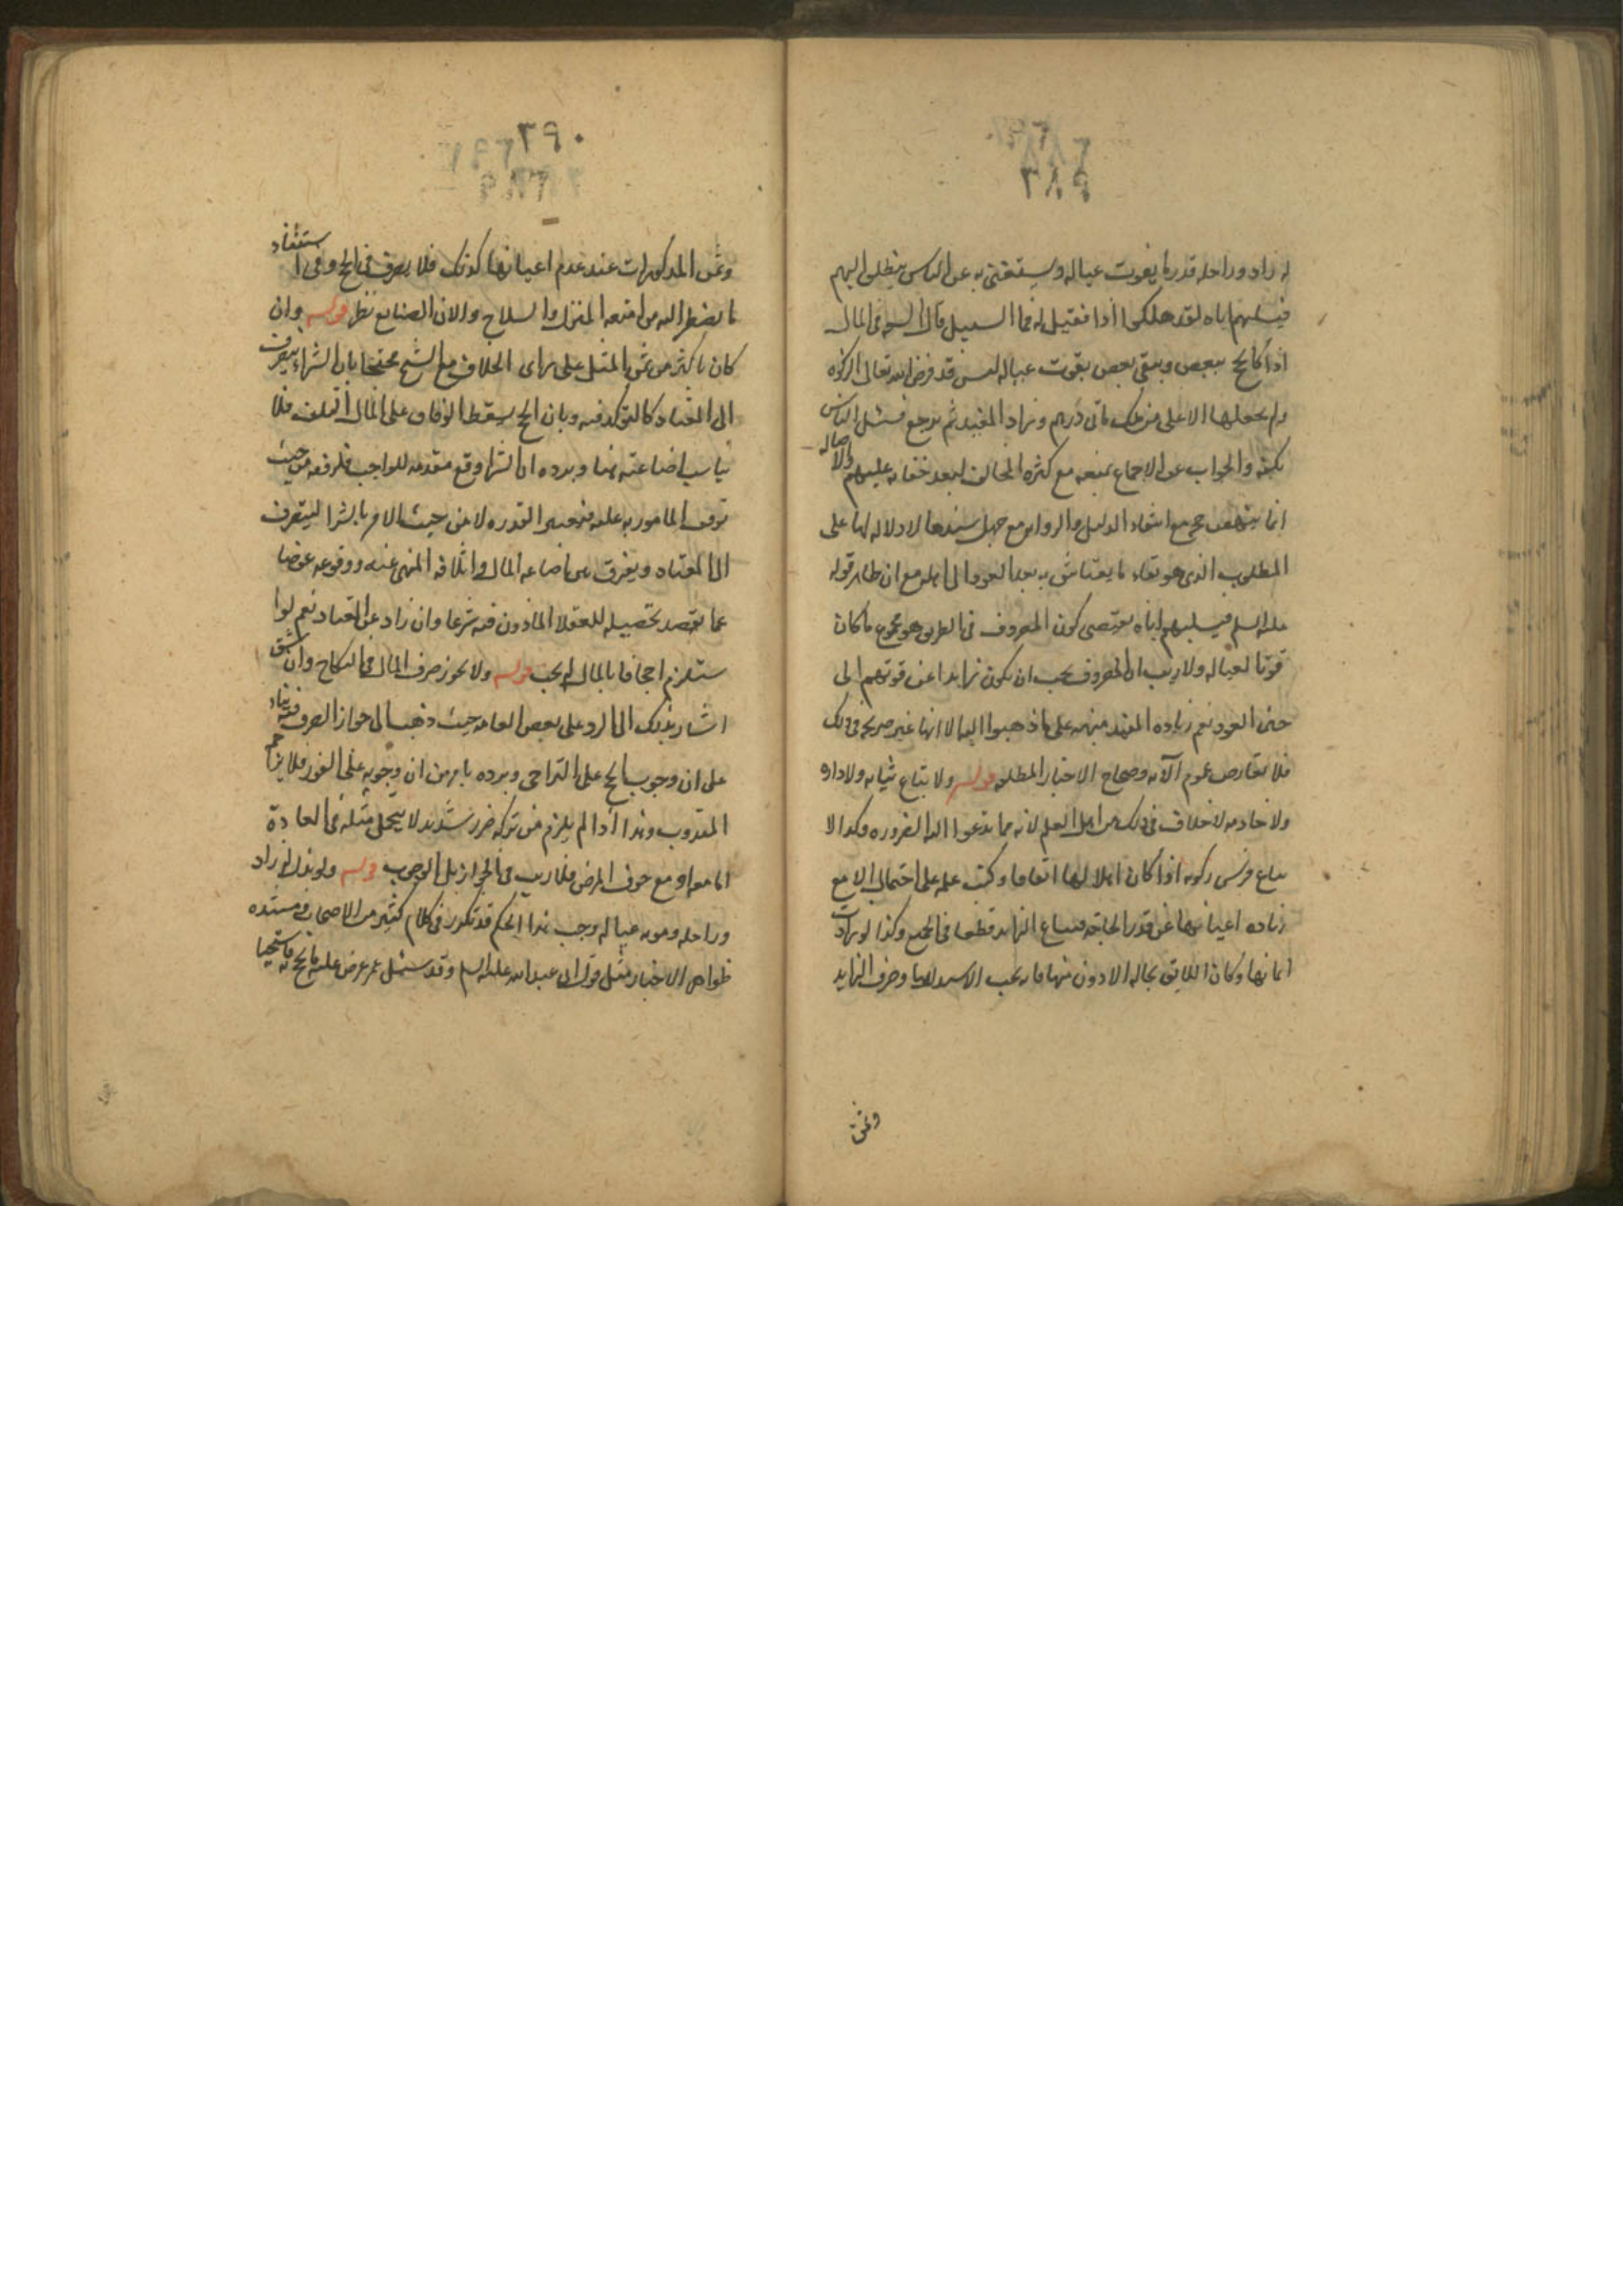 ٢٨٩
له زاد وراحله قدر ما يقوت عياله ويستغني به عن الناس ينطلق اليهم
فيسلبهم اياه لقد هلكوا اذا فقيل له فما السبيل قال السعه في المال
اذا كان يحج ببعض ويبقى بعض يقوت عياله ليس قد فرض الله تعالى الزكوه
ولم يجعلها الا على من ملك مأتي درهم وزاد المفيد ثم يرجع فيسئل الناس
بكفه والجواب عن الاجماع بمنعه مع كثره المخالف لبعد خفائه عليهم والاصاله
انما ينهض حجه مع انتفاء الدليل والروايه مع جهل سندها لا دلاله لها على
المطلوب الذي هو بقاء ما يعتاش به بعد العود الى اهله مع ان ظاهر قوله
عليه السلم فيسلبهم اياه يقتضي كون المصروف في الطريق هو مجموع ما كان
قوتا لعياله ولا ريب ان المصروف يجب ان يكون زايدا عن قوتهم الى
حين العود نعم زياده المفيد منبهه على ما ذهبوا اليه الا انها غير صريحه في ذلك
فلا تعارض عموم الآيه وصحاح الاخبار المطلقه قوله ولا يباع ثيابه ولا داره
ولا خادمه لا خلاف في ذلك من اهل العلم لانه مما تدعوا اليه الضروره وكذا لا
يباع فرس ركوبه اذا كان اهلا لها اتفاقا وكتب علمه على احتمال الا مع
زياده اعيانها عن قدر الحاجه فيباع الزايد قطعا في الجميع وكذا لو زادت
اثمانها وكان اللايق بحاله الادون منها فانه يجب الاستبدال بها وصرف الزايد
وثمن
٢٩٠
وثمن المذكورات عند عدم اعيانها كذلك فلا يصرف في الحج وفي استثناء
ما يضطر اليه من امتعه المنزل والسلاح والات الصنايع نظر قوله وان
كان باكثر من ثمن المثل على راى الخلاف مع الشيخ محتجا بان الشراء بتعرف
الى المعتاد كالتوكيد فيه وبان الحج يسقط لو خاف على المال التلف فلا
يناسب اضاعته هنا ويرده ان الشراء وقع مقدمه للواجب فلرفعه من حيث
توقف المامور به عليه فتوجبه القدره لا من حيث الامر بالشرا ليتصرف
الى المعتاد ويفرق بين اضاعه المال واتلافه المنهى عنه ووقوعه عوضا
عما يقصد تحصيله للعقلا الماذون فيه شرعا وان زاد عن المعتاد نعم لو ا
ستلزم اجحافا بالمال لم يجب قوله ولا يجوز صرف المال في النكاح وان شق
اشار بذلك الى الرد على بعض العامه حيث ذهب الى جواز الصرف فيه بناء
على ان وجوب الحج على التراخي ويرده ما برهن ان وجوبه على الفور فلا يزاحم
المندوب وهذا اذا لم يلزم من تركه ضرر شديد لا يتحمل مثله في العادة
اما معه او مع خوف المرض فلا ريب في الجواز بل الوجوب قوله ولو بذل له زاد
وراحله ومونه عياله وجب هذا الحكم قد تكرر في كلام كثير من الاصحاب ومستنده
ظواهر الاخبار مثل قول ابي عبد الله عليه السلم وقد سئل عمن عرض عليه ما يحج به فاستحيا